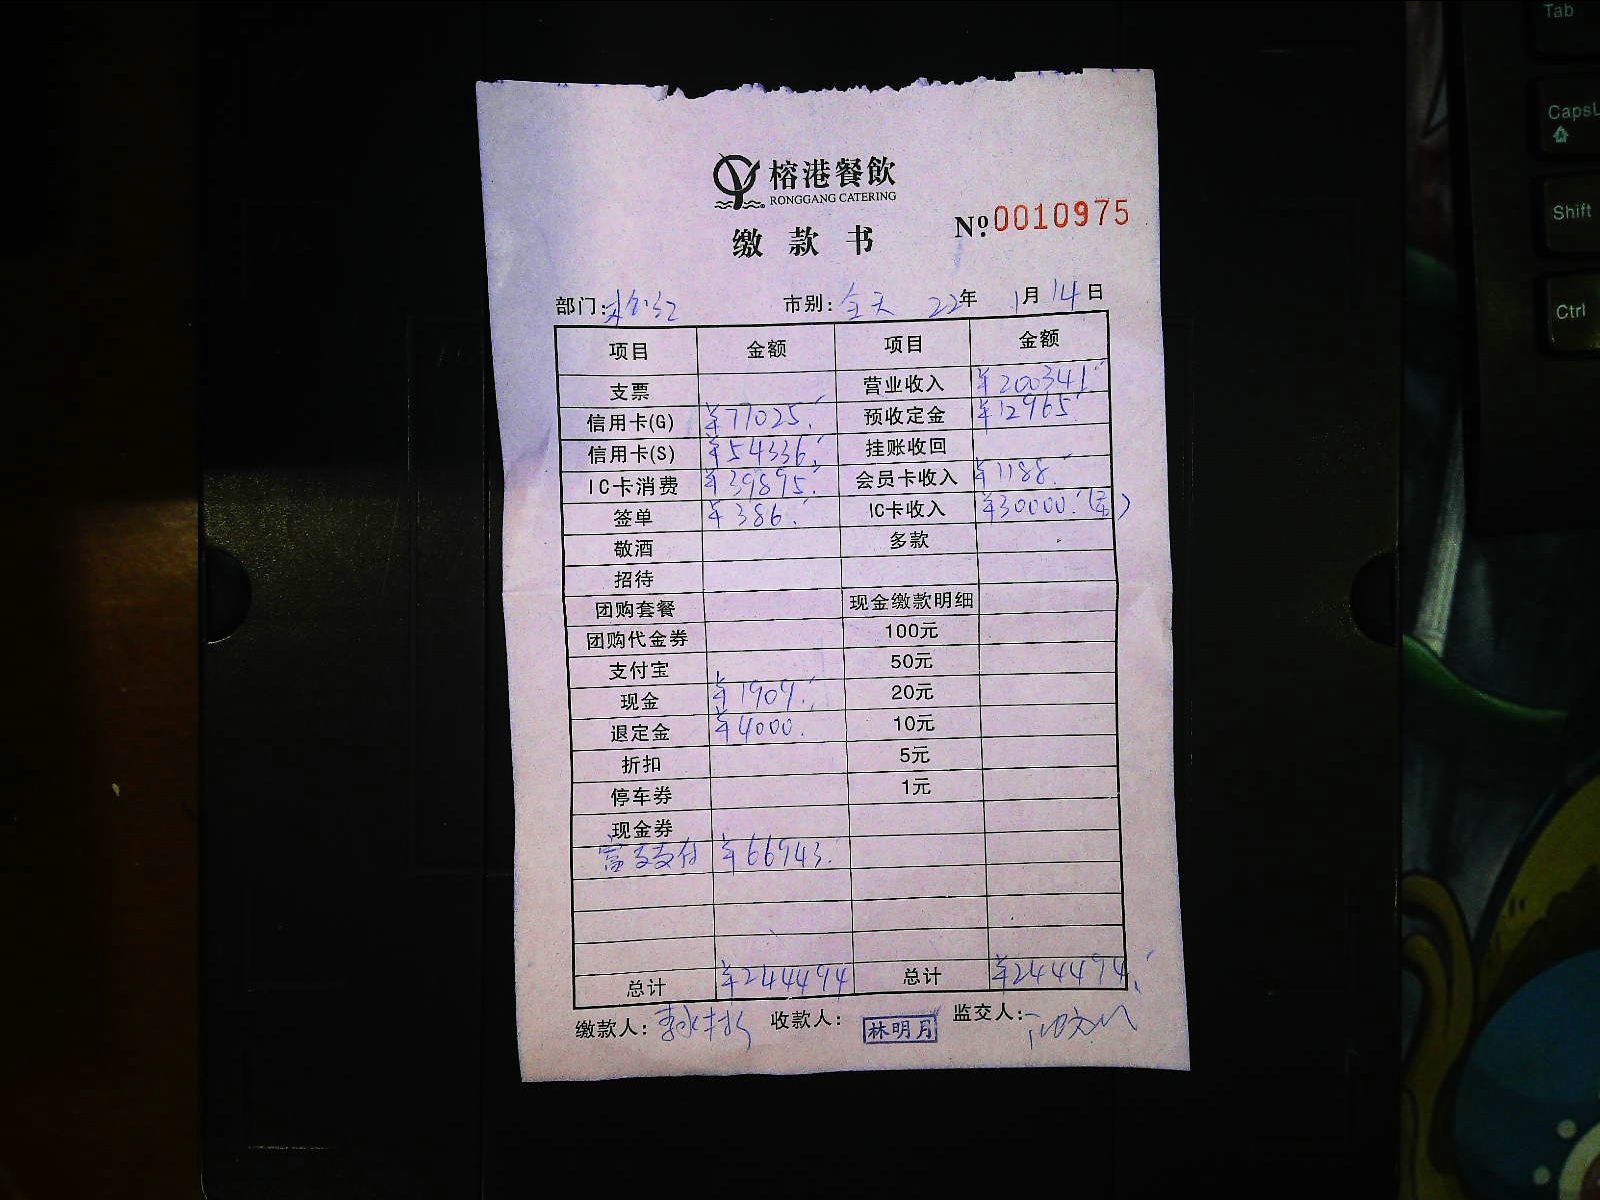 榕港餐飲
RONGGANG CATERING
缴款书
Nº.0010975
部门: 市别: 全天 22年 1月14日
项目 金额 项目 金额
支票 营业收入 ¥200341.
信用卡(G) ¥77025. 预收定金 ¥12965.
信用卡(S) ¥54336. 挂账收回
IC卡消费 ¥39895. 会员卡收入 ¥1188.
签单 ¥386. IC卡收入 ¥30000.
敬酒 多款
招待
团购套餐 现金缴款明细
团购代金券 100元
支付宝 50元
现金 ¥1909. 20元
退定金 ¥4000. 10元
折扣 5元
停车券 1元
现金券
支付 ¥66943.
总计 ¥244494 总计 ¥244494.
缴款人: 收款人: 林明月 监交人:
Tab
CapsL
Shift
Ctrl